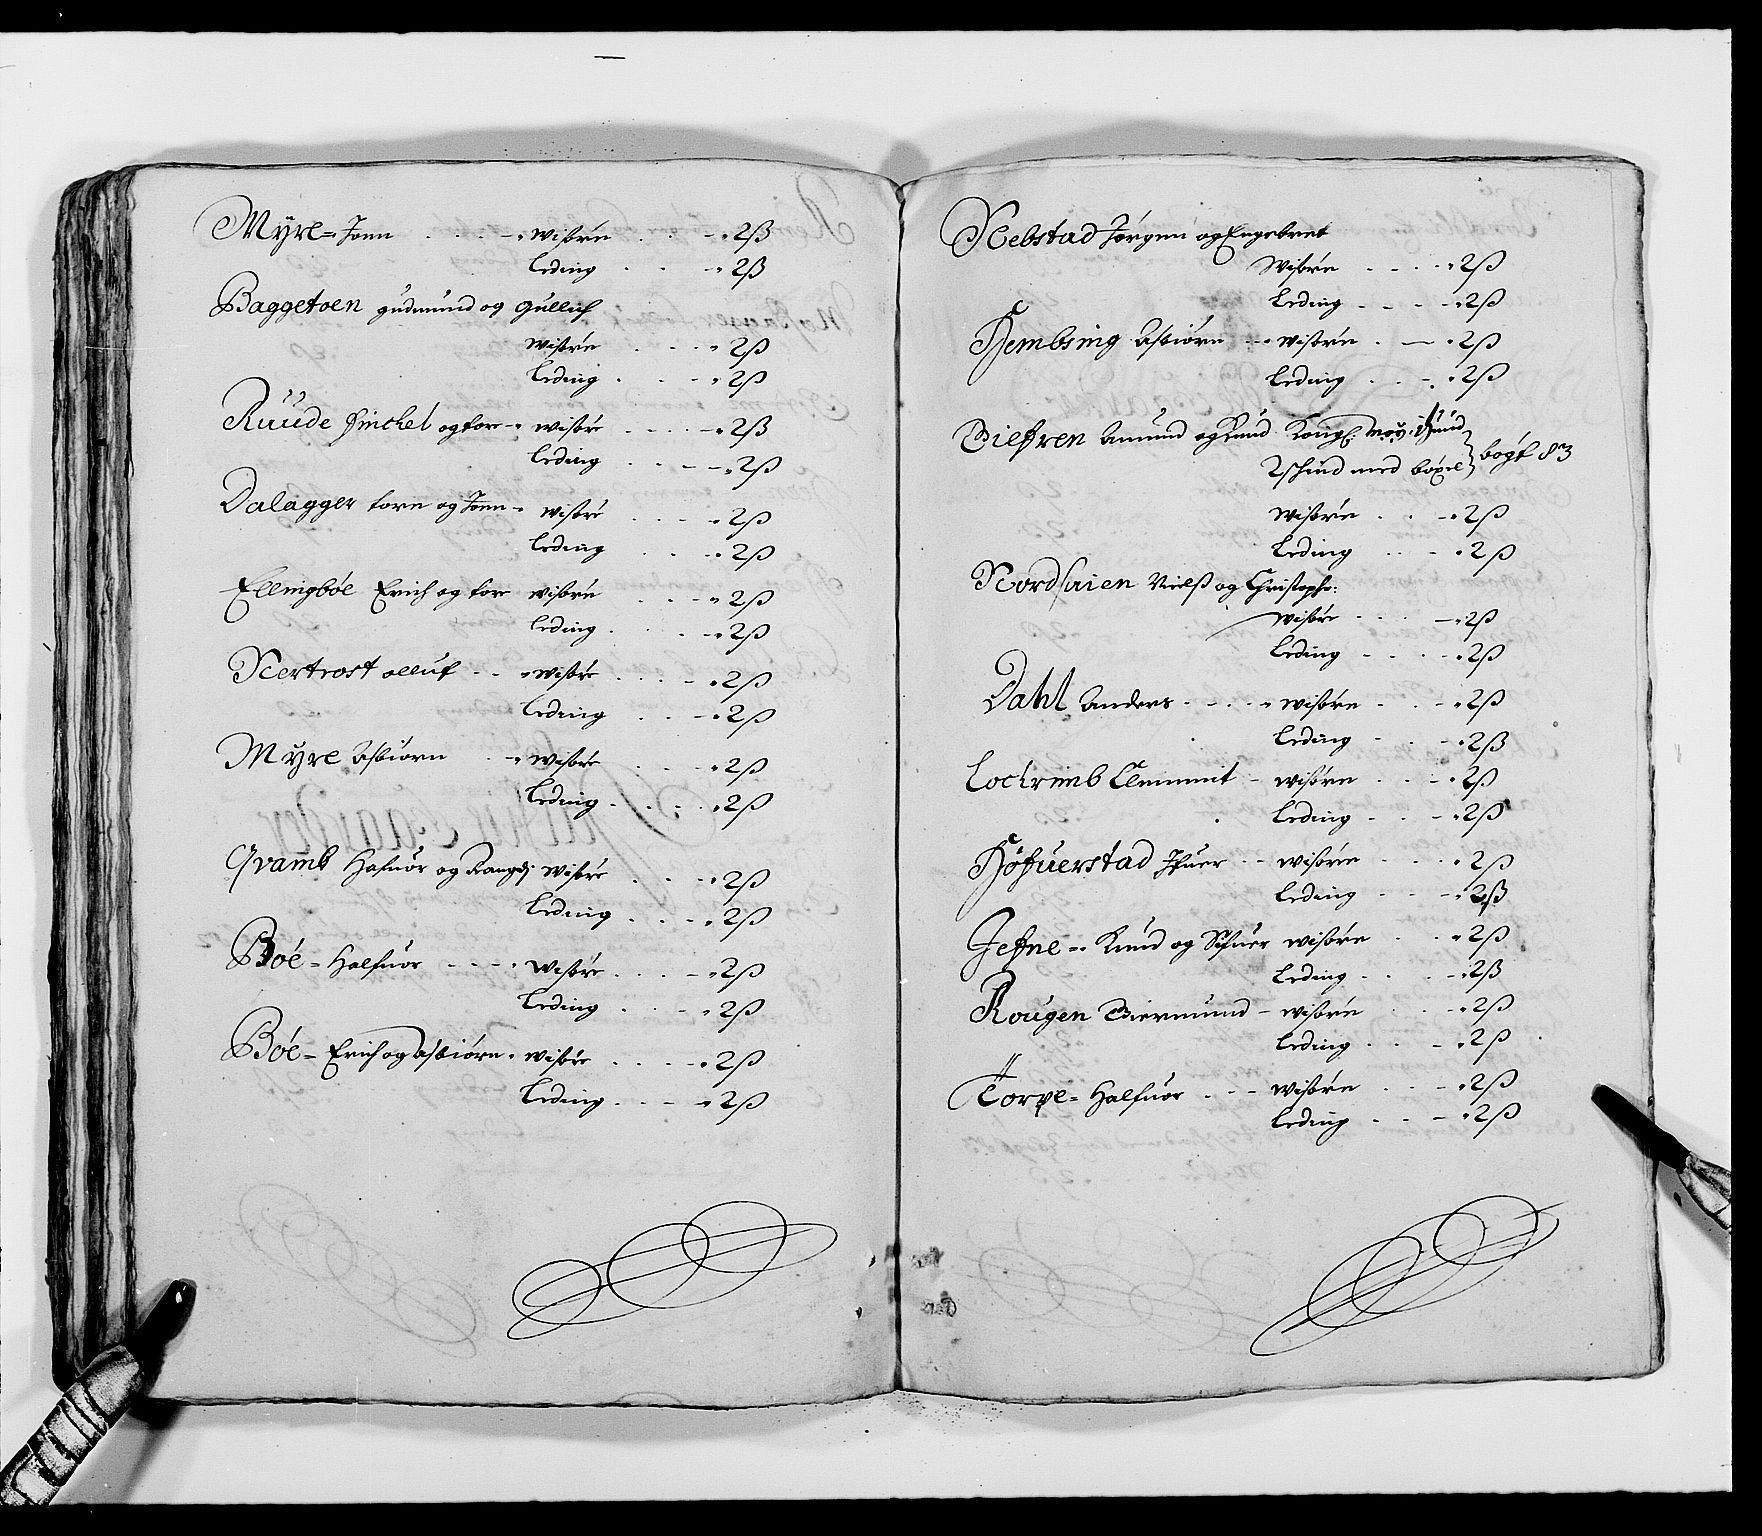 Myre= Jonn - - - wisøre - - 2ß
Leding - - 2ß
Baggetoen gudmund og gullich
wisøre - - 2ß
Leding - - 2ß
Ruude Hinchel og tore - wisøre - - 2ß
Leding - - 2ß
Dalagger tore og Jonn - wisøre - - 2ß
Leding - - 2ß
Ellingbøe Erich og tore wisøre - - 2ß
Leding - - 2ß
Nertrost olluf - - wisøre - - 2ß
Leding - - 2ß
Myre Asbiørn - wisøre - - 2ß
Leding - - 2ß
Qvamb Hafuor og wisøre - - 2ß
Leding - - 2ß
Bøe - Halfuor - - - wisøre - - 2ß
Leding - - 2ß
Bøe - Erich og Asbiørn - wisøre - - 2ß
Leding - - 2ß
Nebstad Jørgen og Engebret
Wisøre - - 2ß
Leding - - 2ß
Hembsing Asbiørn - wisøre - - 2ß
Leding - - 2ß
Amund og Knud Kongl: May:
2 schind med bøxel bøgt 83
wisøre - - 2ß
Leding - - 2ß
Nordsuien Nielß og Christopher:
wisøre - - 2ß
Leding - - 2ß
Dahl Anders - - - wisøre - - 2ß
Leding - - 2ß
Lochrimb Clemmit - wisøre - - 2ß
Leding - - 2ß
Høfuerstad Ifuer - - wisøre - - 2ß
Leding - - 2ß
Jefne - Knud og Sifuer wisøre - - 2ß
Leding - - 2ß
Rougen Biermund - wisøre - - 2ß
Leding - - 2ß
Torpe= Halfuor - - - wisøre - - 2ß
Leding - - 2ß